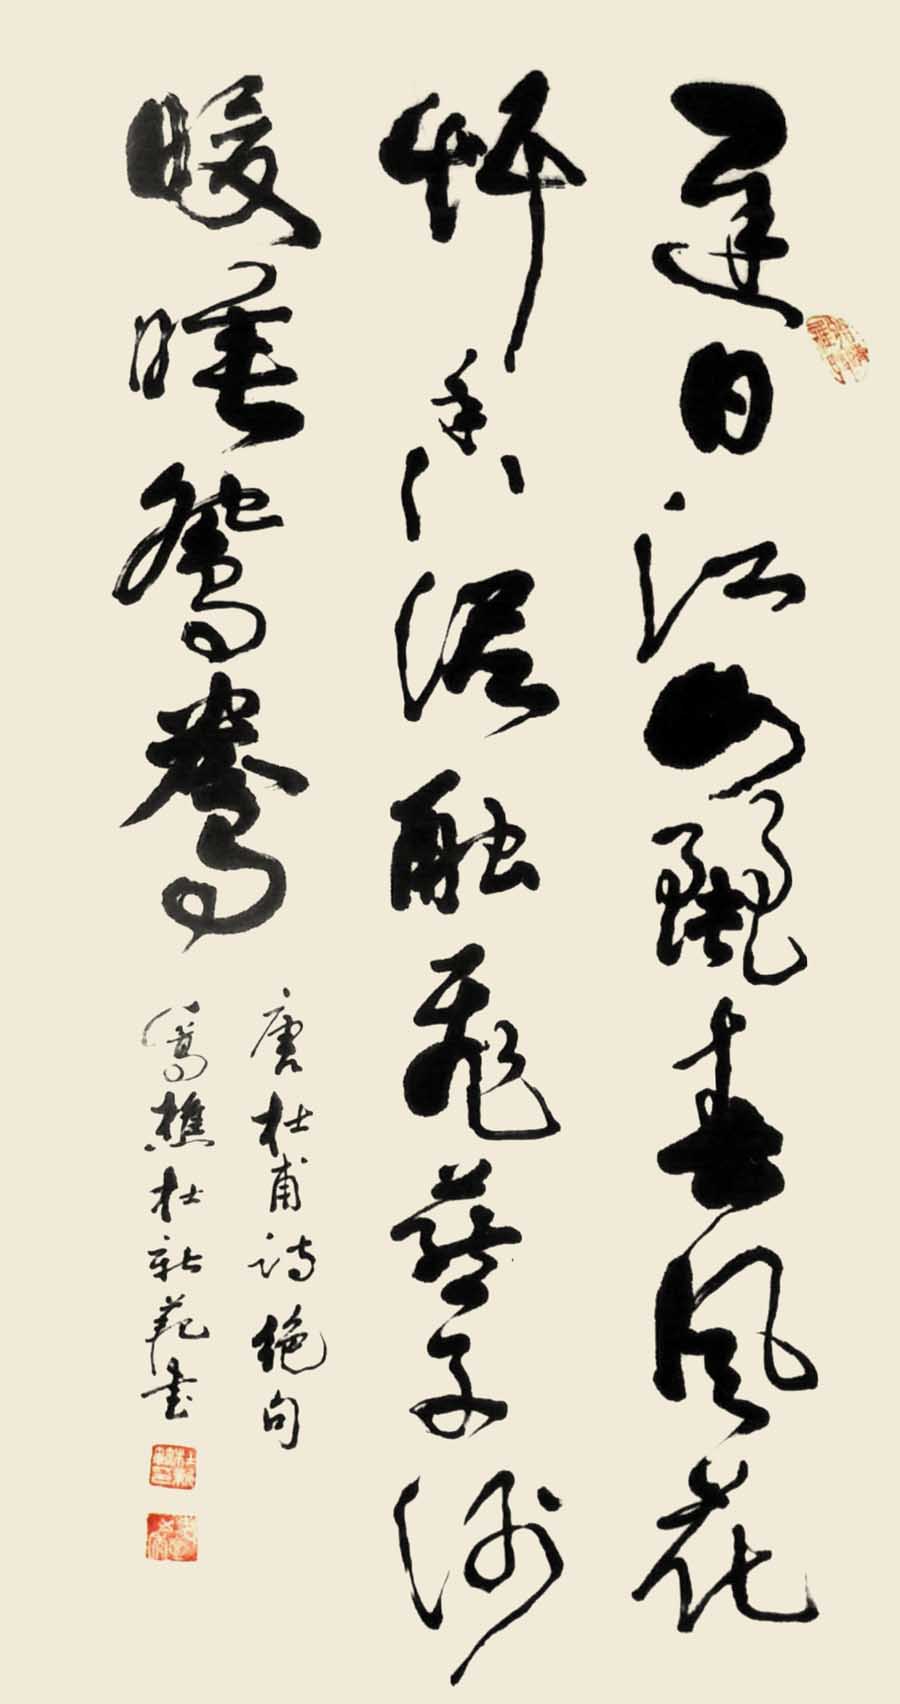 遲日江山麗春風花
艸香泥融飛燕子沙
暖睡鴛鴦
唐杜甫詩絕句
樵杜新範書